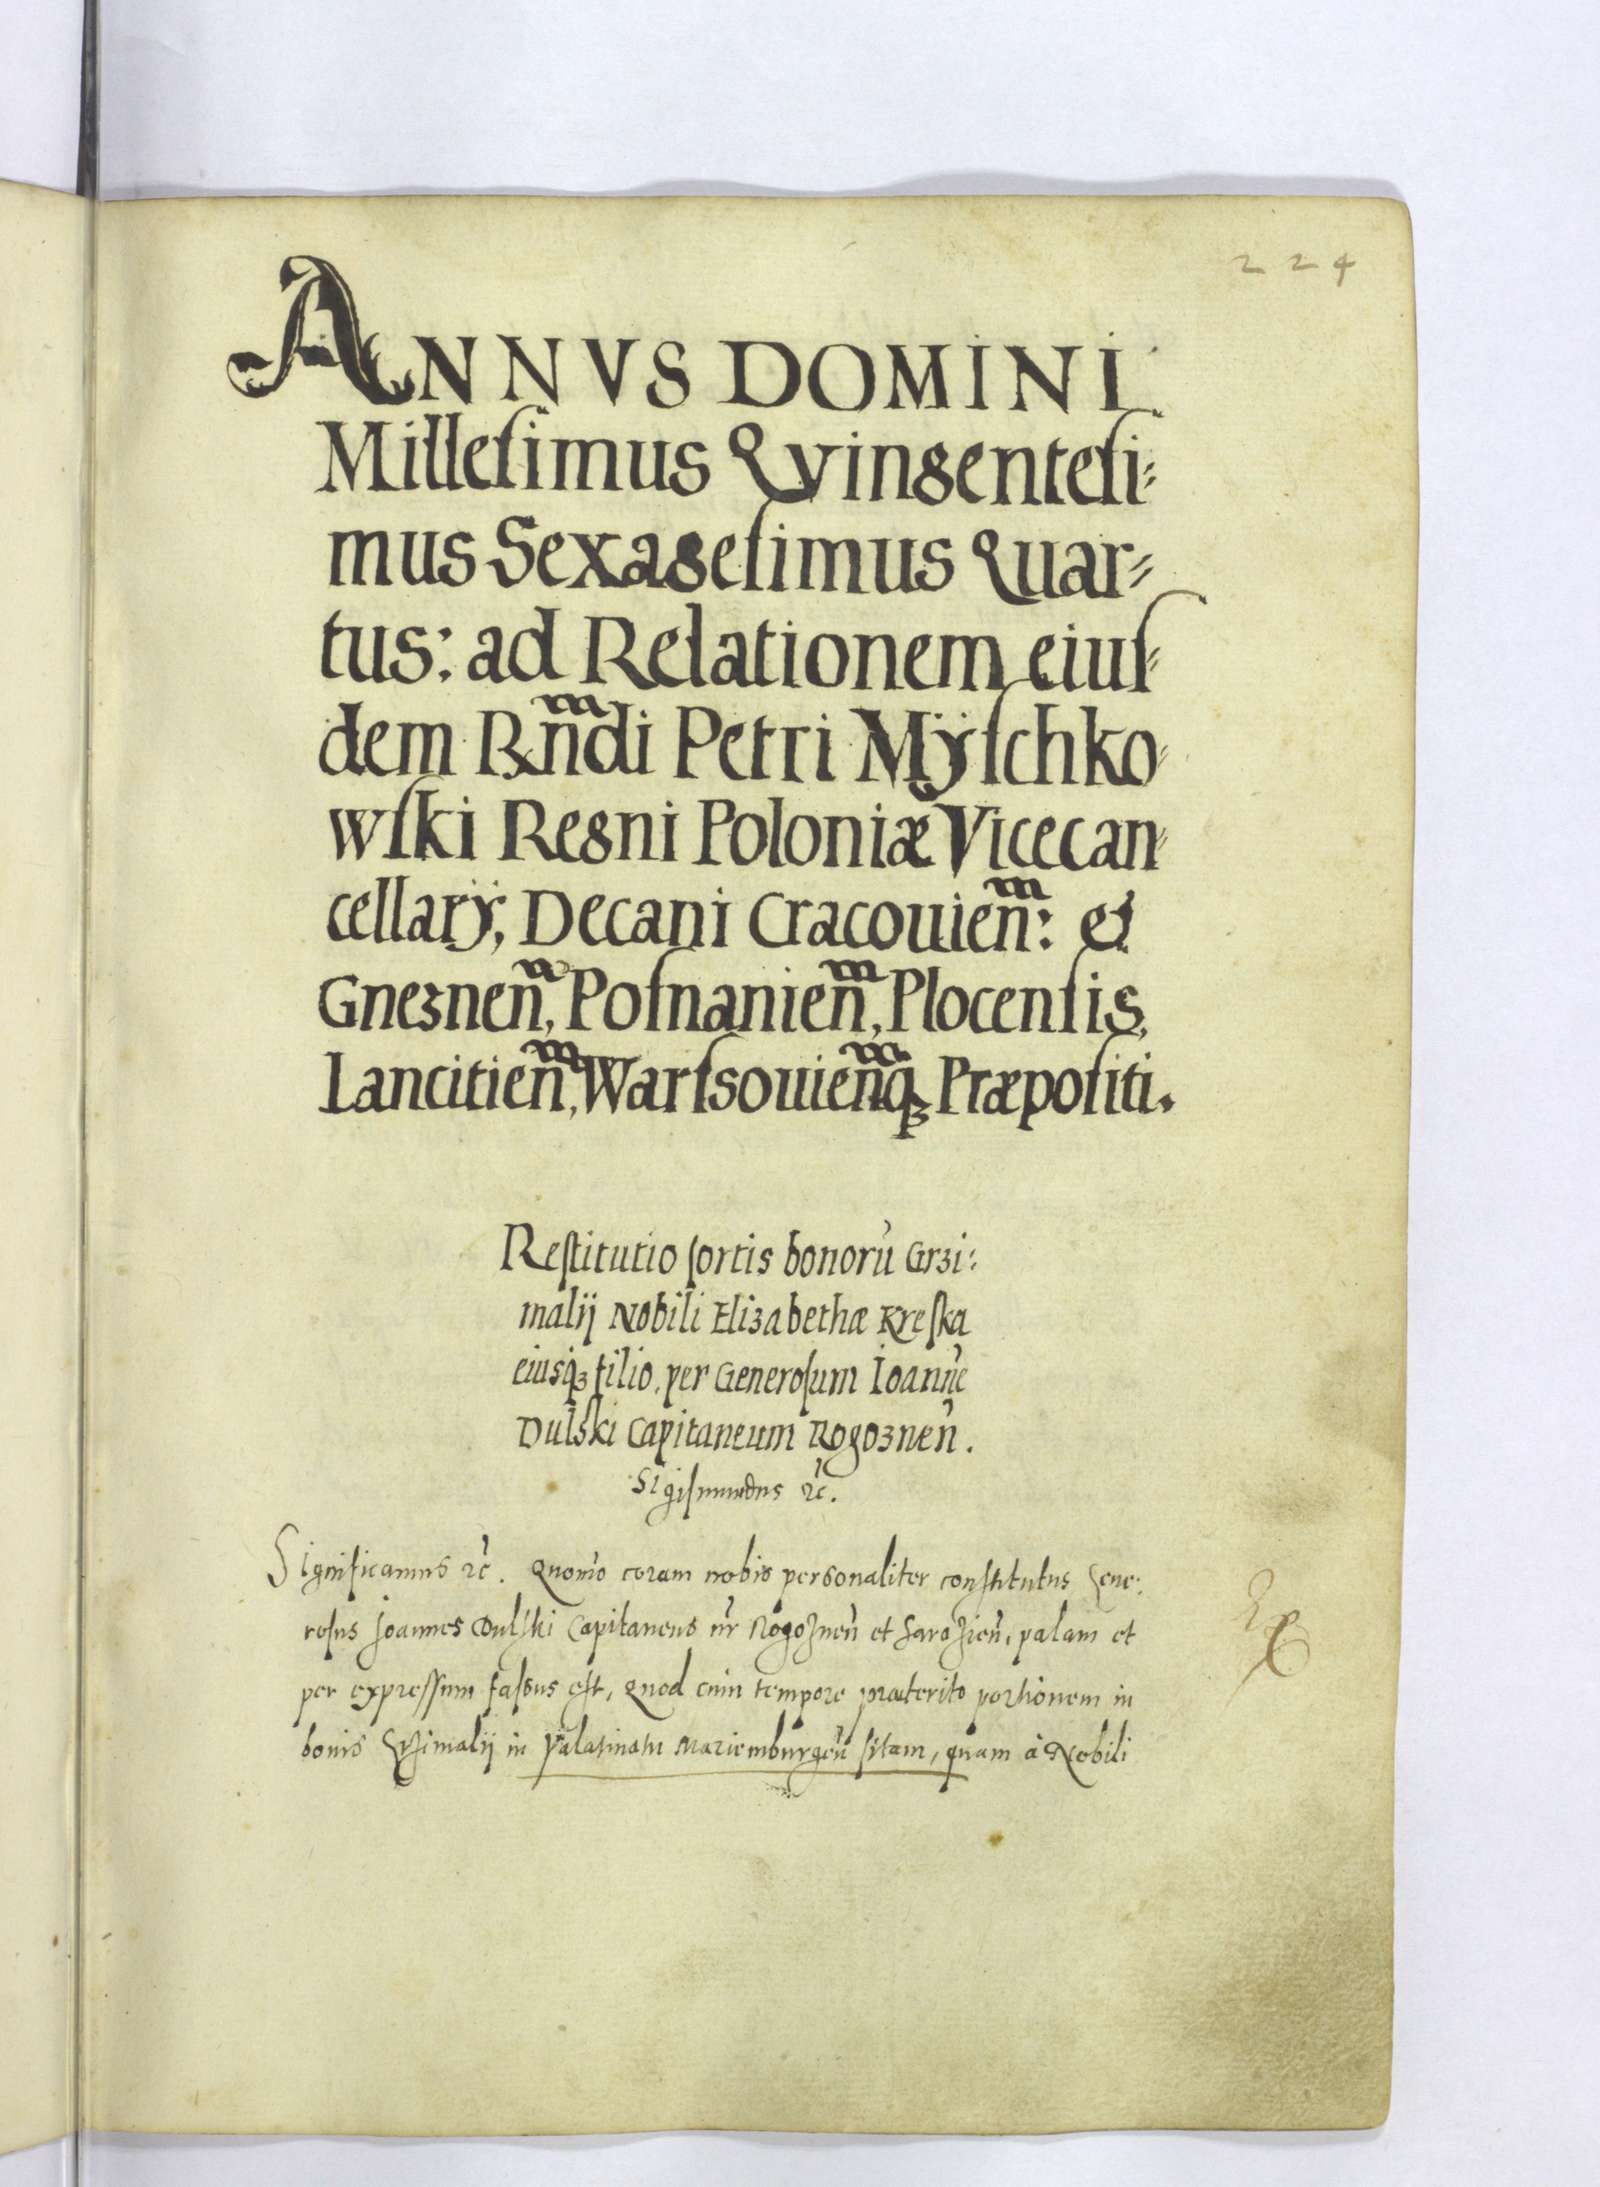 224
ANNVS DOMINI
Millesimus Qvingentesi=
mus Sexagesimus Quar=
tus: ad Relationem eius=
dem Rn̄di Petri Mÿschko=
wski Regni Poloniæ Vicecan=
cellarÿ, Decani Cracouien̄: et
Gneznen̄, Posnanien̄, Plocensis,
Lancitien̄, Warssouien̄q3 Præpositi.
Restitutio sortis bonorū Grzi=
malij Nobili Elizabethæ Kreska
eiusq3 filio, per Generosum Joannē
Dulski Capitaneum Rogoznen̄.
Sigismundus ꝛc̄.
Significamus ꝛc̄. Quomō coram nobis personaliter constitutus Gene:
rosus Joannes Dulski Capitaneus nr̄ Rogoznen̄ et, palam et
per expressum fassus est, Quod cum tempore præterito portionem in
bonis Grzimalij in Palatinatu Mariemburgen̄ sitam, quam à Nobili